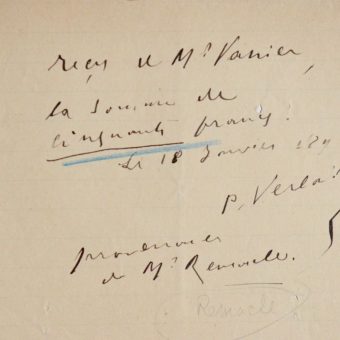 reçu de Mr Vanier,
la somme de
cinquante francs.
Le 18 Janvier 189
P. Verlai
provenance
de Mr Remacle.
Remacle